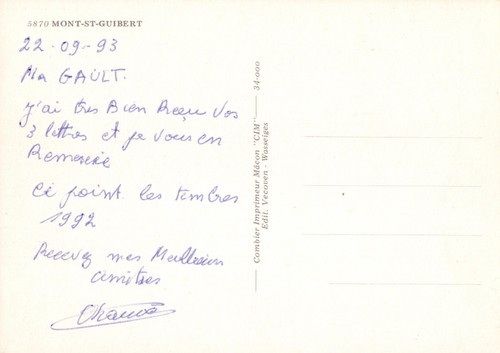 5870 MONT-ST-GUIBERT
22-09-93
Mr GAULT.
J'ai très Bien Reçu vos
3 lettres et je vous en
Remercie
Ci joint les timbres
1992
Recevez mes Meilleurs
amitiés
Combier Imprimeur Mâcon "CIM" 34-000
Edit. Vecoven - Wasseiges